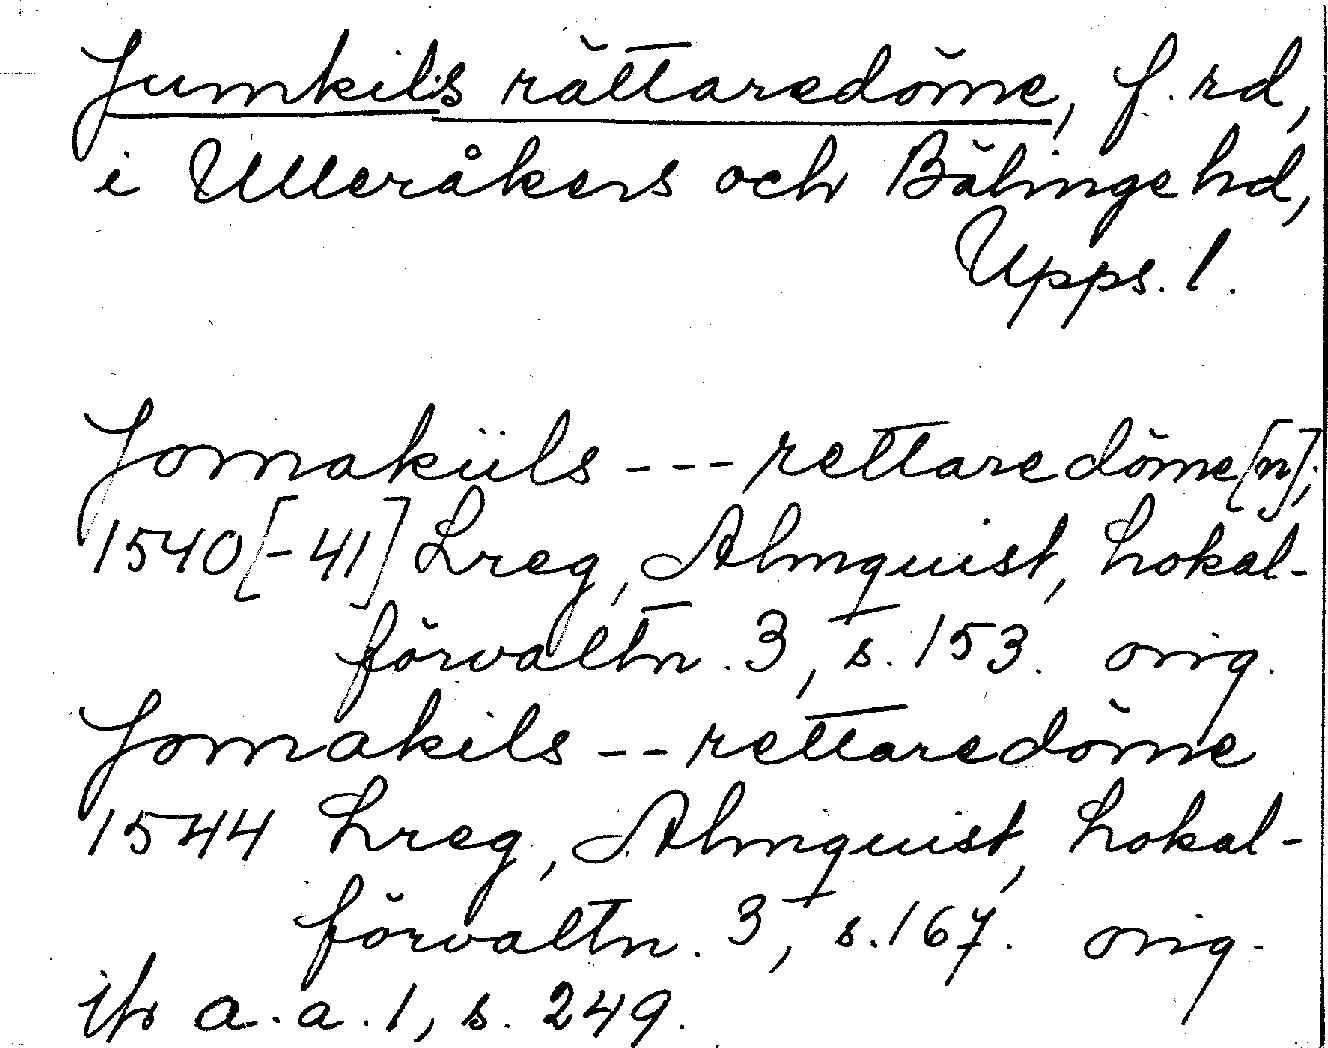 Jumkils rättaredöme, f. rd,
i Ulleråkers och Bälinge hd,
Upps. l.
Jomaküls --- rettaredöme[n];
1540[-41] Lreg, Almquist, Lokal-
förvaltn. 3, s. 153. orig.
Jomakils -- rettaredöme
1544 Lreg, Almquist, Lokal-
förvaltn. 3, s. 167. orig.
jfr a. a. 1, s. 249.